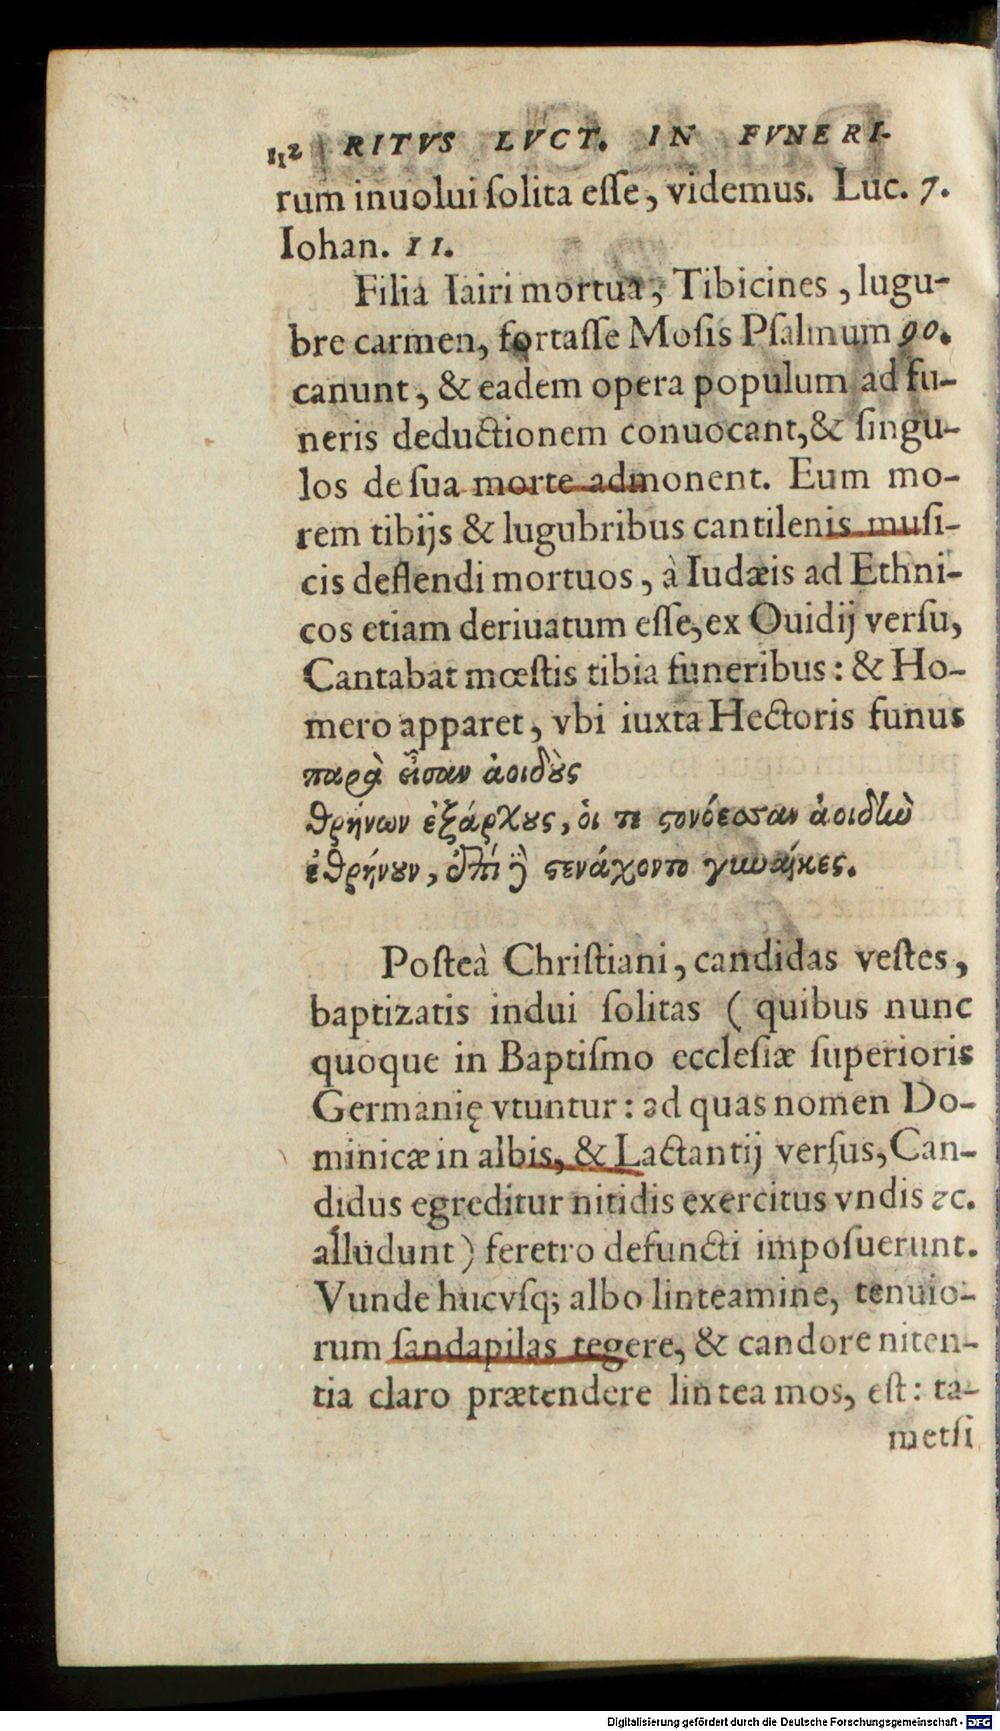 112 RITVS LVCT. IN FVNERI-
rum inuolui ſolita eſſe, videmus. Luc. 7.
Iohan. 11.
Filia Iairi mortua, Tibicines, lugu-
bre carmen, fortaſſe Moſis Pſalmum 90.
canunt, & eadem opera populum ad fu-
neris deductionem conuocant, & ſingu-
los de ſua morte admonent. Eum mo-
rem tibijs & lugubribus cantilenis muſi-
cis deflendi mortuos, à Iudæis ad Ethni-
cos etiam deriuatum eſſe, ex Ouidij verſu,
Cantabat mœſtis tibia funeribus: & Ho-
mero apparet, vbi iuxta Hectoris funus
παρὰ εἷσαν ἀοιδὸυς
θρήνων ἐξάρχους, ὁι τε ϛονόεσσαν ἀοιδὴν
ἐθρήνουν, ἐπὶ δὲ ϛενάχοντο γυναῖκες.
Poſteà Chriſtiani, candidas veſtes,
baptizatis indui ſolitas ( quibus nunc
quoque in Baptiſmo eccleſiæ ſuperioris
Germanię vtuntur: ad quas nomen Do-
minicæ in albis, & Lactantij verſus, Can-
didus egreditur nitidis exercitus vndis ⁊c.
alludunt) feretro defuncti impoſuerunt.
Vunde hucvſq; albo linteamine, tenuio-
rum ſandapilas tegere, & candore niten-
tia claro prætendere lintea mos, eſt: ta-
metſi
Digitalisierung gefördert durch die Deutsche Forschungsgemeinschaft - DFG